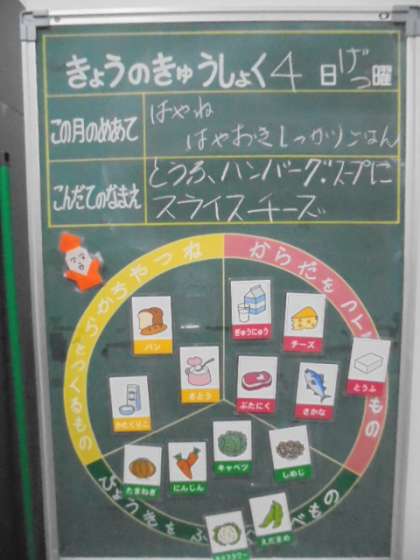 きょうのきゅうしょく 4 日 げつ 曜
この月のめあて
はやね
はやおき しっかりごはん
こんだてのなまえ
とうふ、ハンバーグ、スープに
スライスチーズ
ちからやねつ
になるもの
からだをつくる
もの
ぎゅうにゅう
チーズ
パン
とうふ
さとう
ぶたにく
さかな
かたくりこ
キャベツ
しめじ
たまねぎ
にんじん
えだまめ
びょうきを